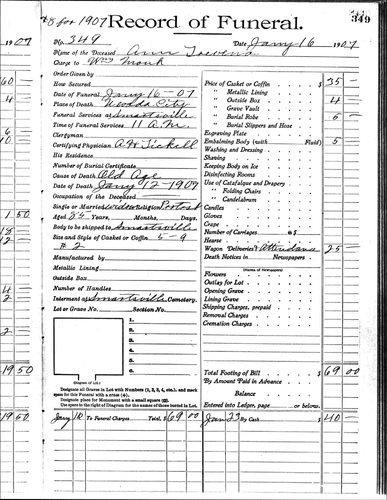 # 8 for 1907
Record of Funeral.
349
1907
No. 349
Date, Jany 16 1907
Name of the Deceased Ann
Charge to Wm Monk
Order Given by
How Secured
Date of Funeral Jany 16-07
Place of Death Nevada City
Funeral Services at Smartsville
Time of Funeral Services 11 A.M.
Clergyman
Certifying Physician A H Tickell
His Residence
Number of Burial Certificate
Cause of Death Old Age
Date of Death Jany 12-1907
Occupation of the Deceased
Single or Married Widow Religion Protest
Aged 85 Years, Months, Days.
Body to be shipped to Smartsville
Size and Style of Casket or Coffin 5-9
# 2
Manufactured by
Metallic Lining
Outside Box
Number of Handles
Interment at Smartsville Cemetery.
Lot or Grave No. Section No.
1.
2.
3.
4.
5.
6.
(Diagram of Lot.)
Designate all Graves in Lot with Numbers (1, 2, 3, 4, etc.), and mark
space for this Funeral with a cross (+).
Designate place for Monument with a small square (□).
Use space to the right of Diagram for the names of those buried in Lot.
Price of Casket or Coffin $ 35 —
" Metallic Lining
" Outside Box 4 —
" Grave Vault
" Burial Robe 5 —
" Burial Slippers and Hose
Engraving Plate
Embalming Body (with Fluid) 5
Washing and Dressing
Shaving
Keeping Body on Ice
Disinfecting Rooms
Use of Catafalque and Drapery
" Folding Chairs
" Candelabrum
Candles
Gloves
Crape
Number of Carriages @ $
Hearse
Wagon Deliveries & Attendance 25 —
Death Notices in Newspapers
(Names of Newspapers)
Flowers
Outlay for Lot
Opening Grave
Lining Grave
Shipping Charges, prepaid
Removal Charges
Cremation Charges
Total Footing of Bill $ 69 00
By Amount Paid in Advance
Balance
Entered into Ledger, page or below.
To Funeral Charges Total, $ 69 00
Jan 23 By Cash $ 40 —
60
4
6
10
1 50
18
12
4
2
2
19 50
19 50